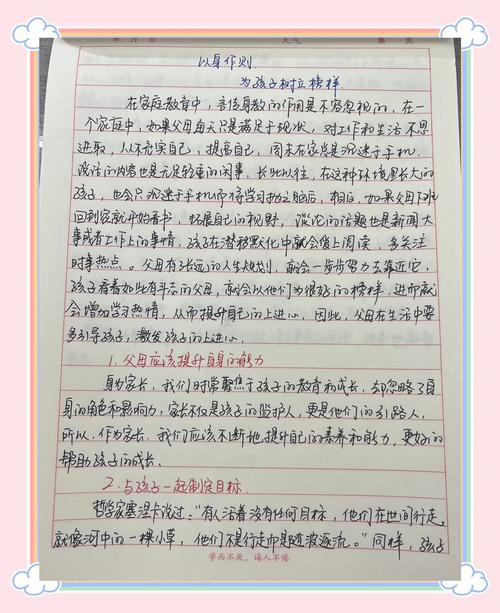 年 月 日 天气 第 页
以身作则
为孩子树立榜样
在家庭教育中，言传身教的作用是不容忽视的。在一
个家庭中，如果父母每天只是满足于现状，对工作和生活不思
进取，从不充实自己，提高自己，周末在家总是沉迷于手机，
谈话的内容也是无足轻重的闲事，长此以往，在这种环境里长大的
孩子，也会只沉迷于手机而将学习抛之脑后，相反，如果父母下班
回到家就开始看书，拓展自己的视野，谈论的话题也是新闻大
事或者工作上的事情，孩子在潜移默化中就会爱上阅读，多关注
时事热点。父母有长远的人生规划，就会一步步努力去靠近它，
孩子看着如此有斗志的父母，就会以他们为很好的榜样，进而就
会增加学习热情，从而提升自己的上进心。因此，父母在生活中要
多引导孩子，激发孩子的上进心。
1. 父母应该提升自身的能力
身为家长，我们时常聚焦于孩子的教育和成长，却忽略了自
身的角色和影响力，家长不仅是孩子的监护人，更是他们的引路人，
所以，作为家长，我们应该不断地提升自己的素养和能力，更好的
帮助孩子的成长。
2. 与孩子一起制定目标
哲学家塞涅卡说过："有人活着没有任何目标，他们在世间行走，
就像河中的一棵小草，他们不是行走而是随波逐流。"同样，孩子
学而不厌，诲人不倦